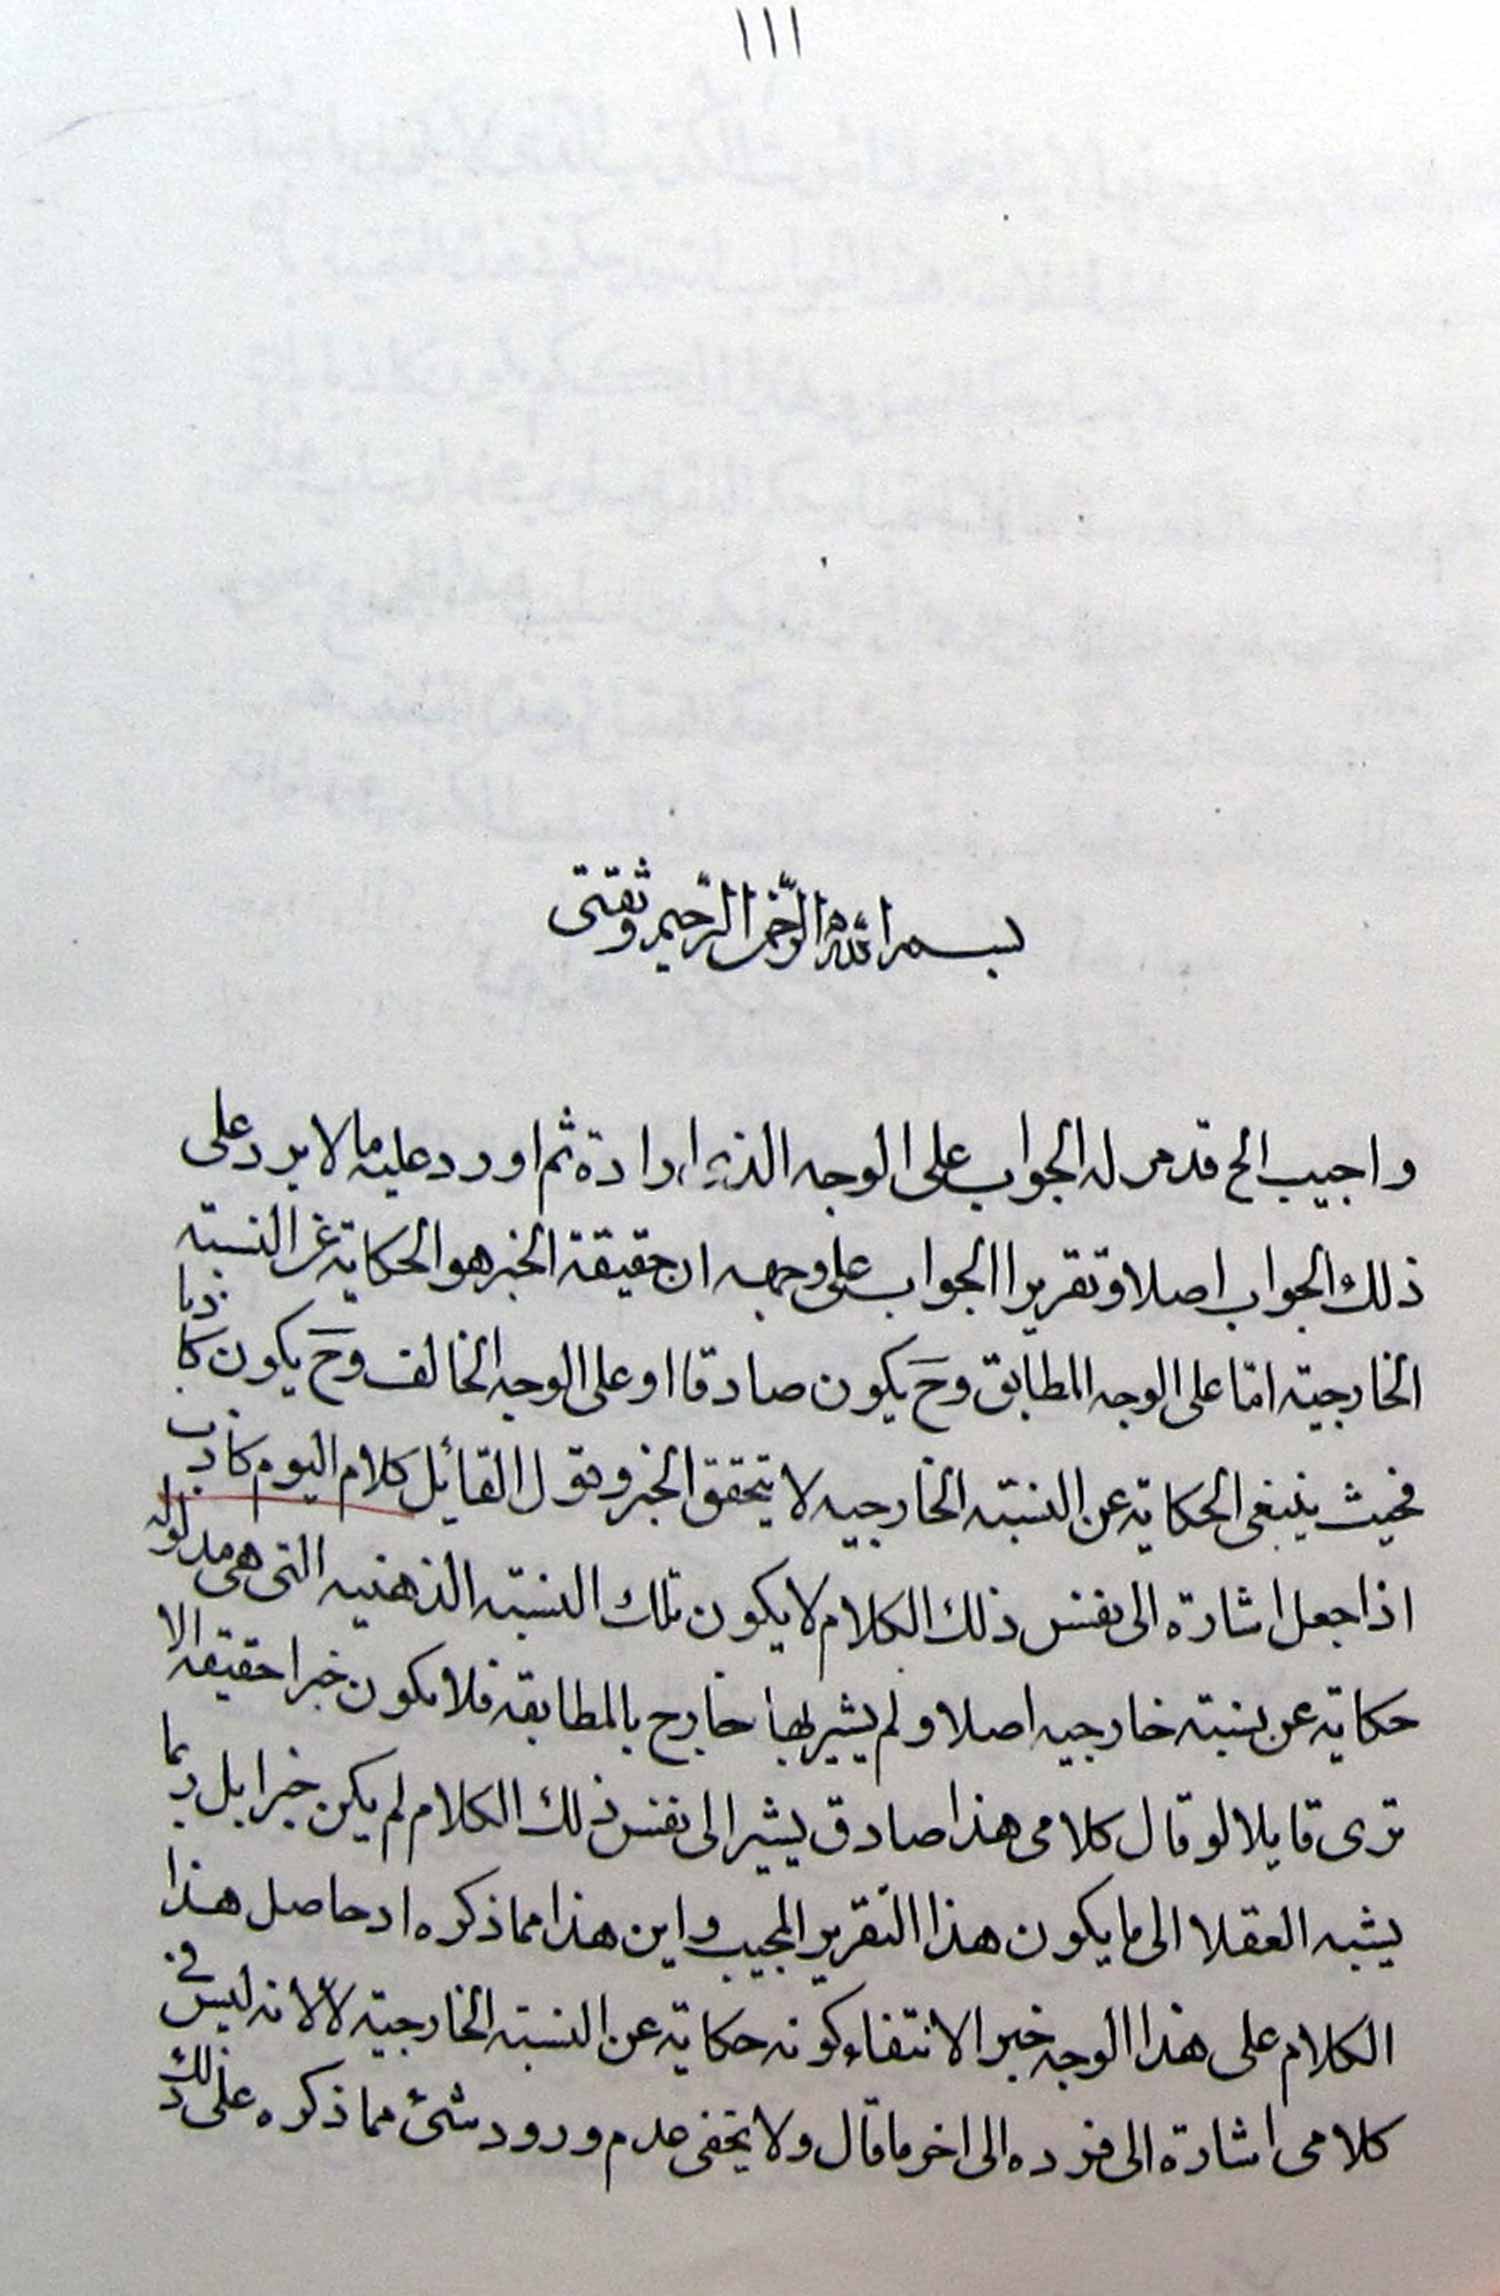 ١١١
بسم الله الرحمن الرحيم وثقتى
واجيب الح قد مر له الجواب على الوجه الذى اراده ثم اورد عليه ما لا يرد على
ذلك الجواب اصلا وتقرير الجواب على وجهه ان حقيقة الخبر هو الحكاية عن النسبته
الخارجيته امّا على الوجه المطابق وحَ يكون صادقا او على الوجه الخالف وحَ يكون كاذبا
فحيث ينبغى الحكاية عن النسبته الخارجيه لا يتحقق الخبر وقول القائل كلام اليوم كاذب
اذا جعل اشارة الى نفس ذلك الكلام لا يكون تلك النسبته الذهنيه التى هى مدلوله
حكاية عن نسبته خارجيه اصلا ولم يشير لها خارج بالمطابقه فلا يكون خبرا حقيقه الا
ترى قايلا لو قال كلامى هذا صادق يشير الى نفس ذلك الكلام لم يكن خبرا بل ربما
يشبه العقلا الى ما يكون هذا التقرير المجيب واين هذا مما ذكره اد حاصل هذا
الكلام على هذا الوجه خبرا لانتفاء كونه حكاية عن النسبته الخارجيته لا لانه ليس فى
كلامى اشارة الى فرده الى اخر ما قال ولا يخفى عدم ورود شئ مما ذكره على ذلك